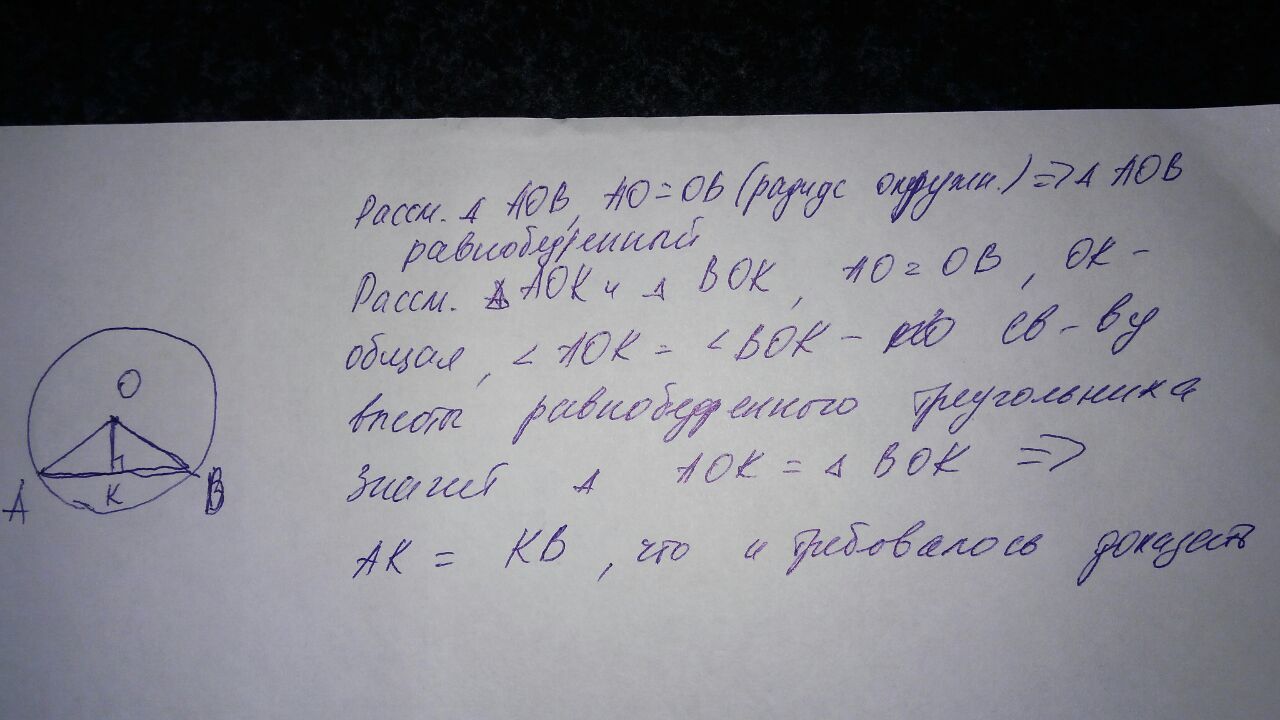 Рассм. △ AOB, AO = OB (радиус окружн.) => △ AOB
равнобедренный
Рассм. △ AOK и △ BOK, AO = OB, OK -
общая, < AOK = < BOK - по св-ву
высоты равнобедренного треугольника
Значит △ AOK = △ BOK =>
AK = KB, что и требовалось доказать
O
A
K
B